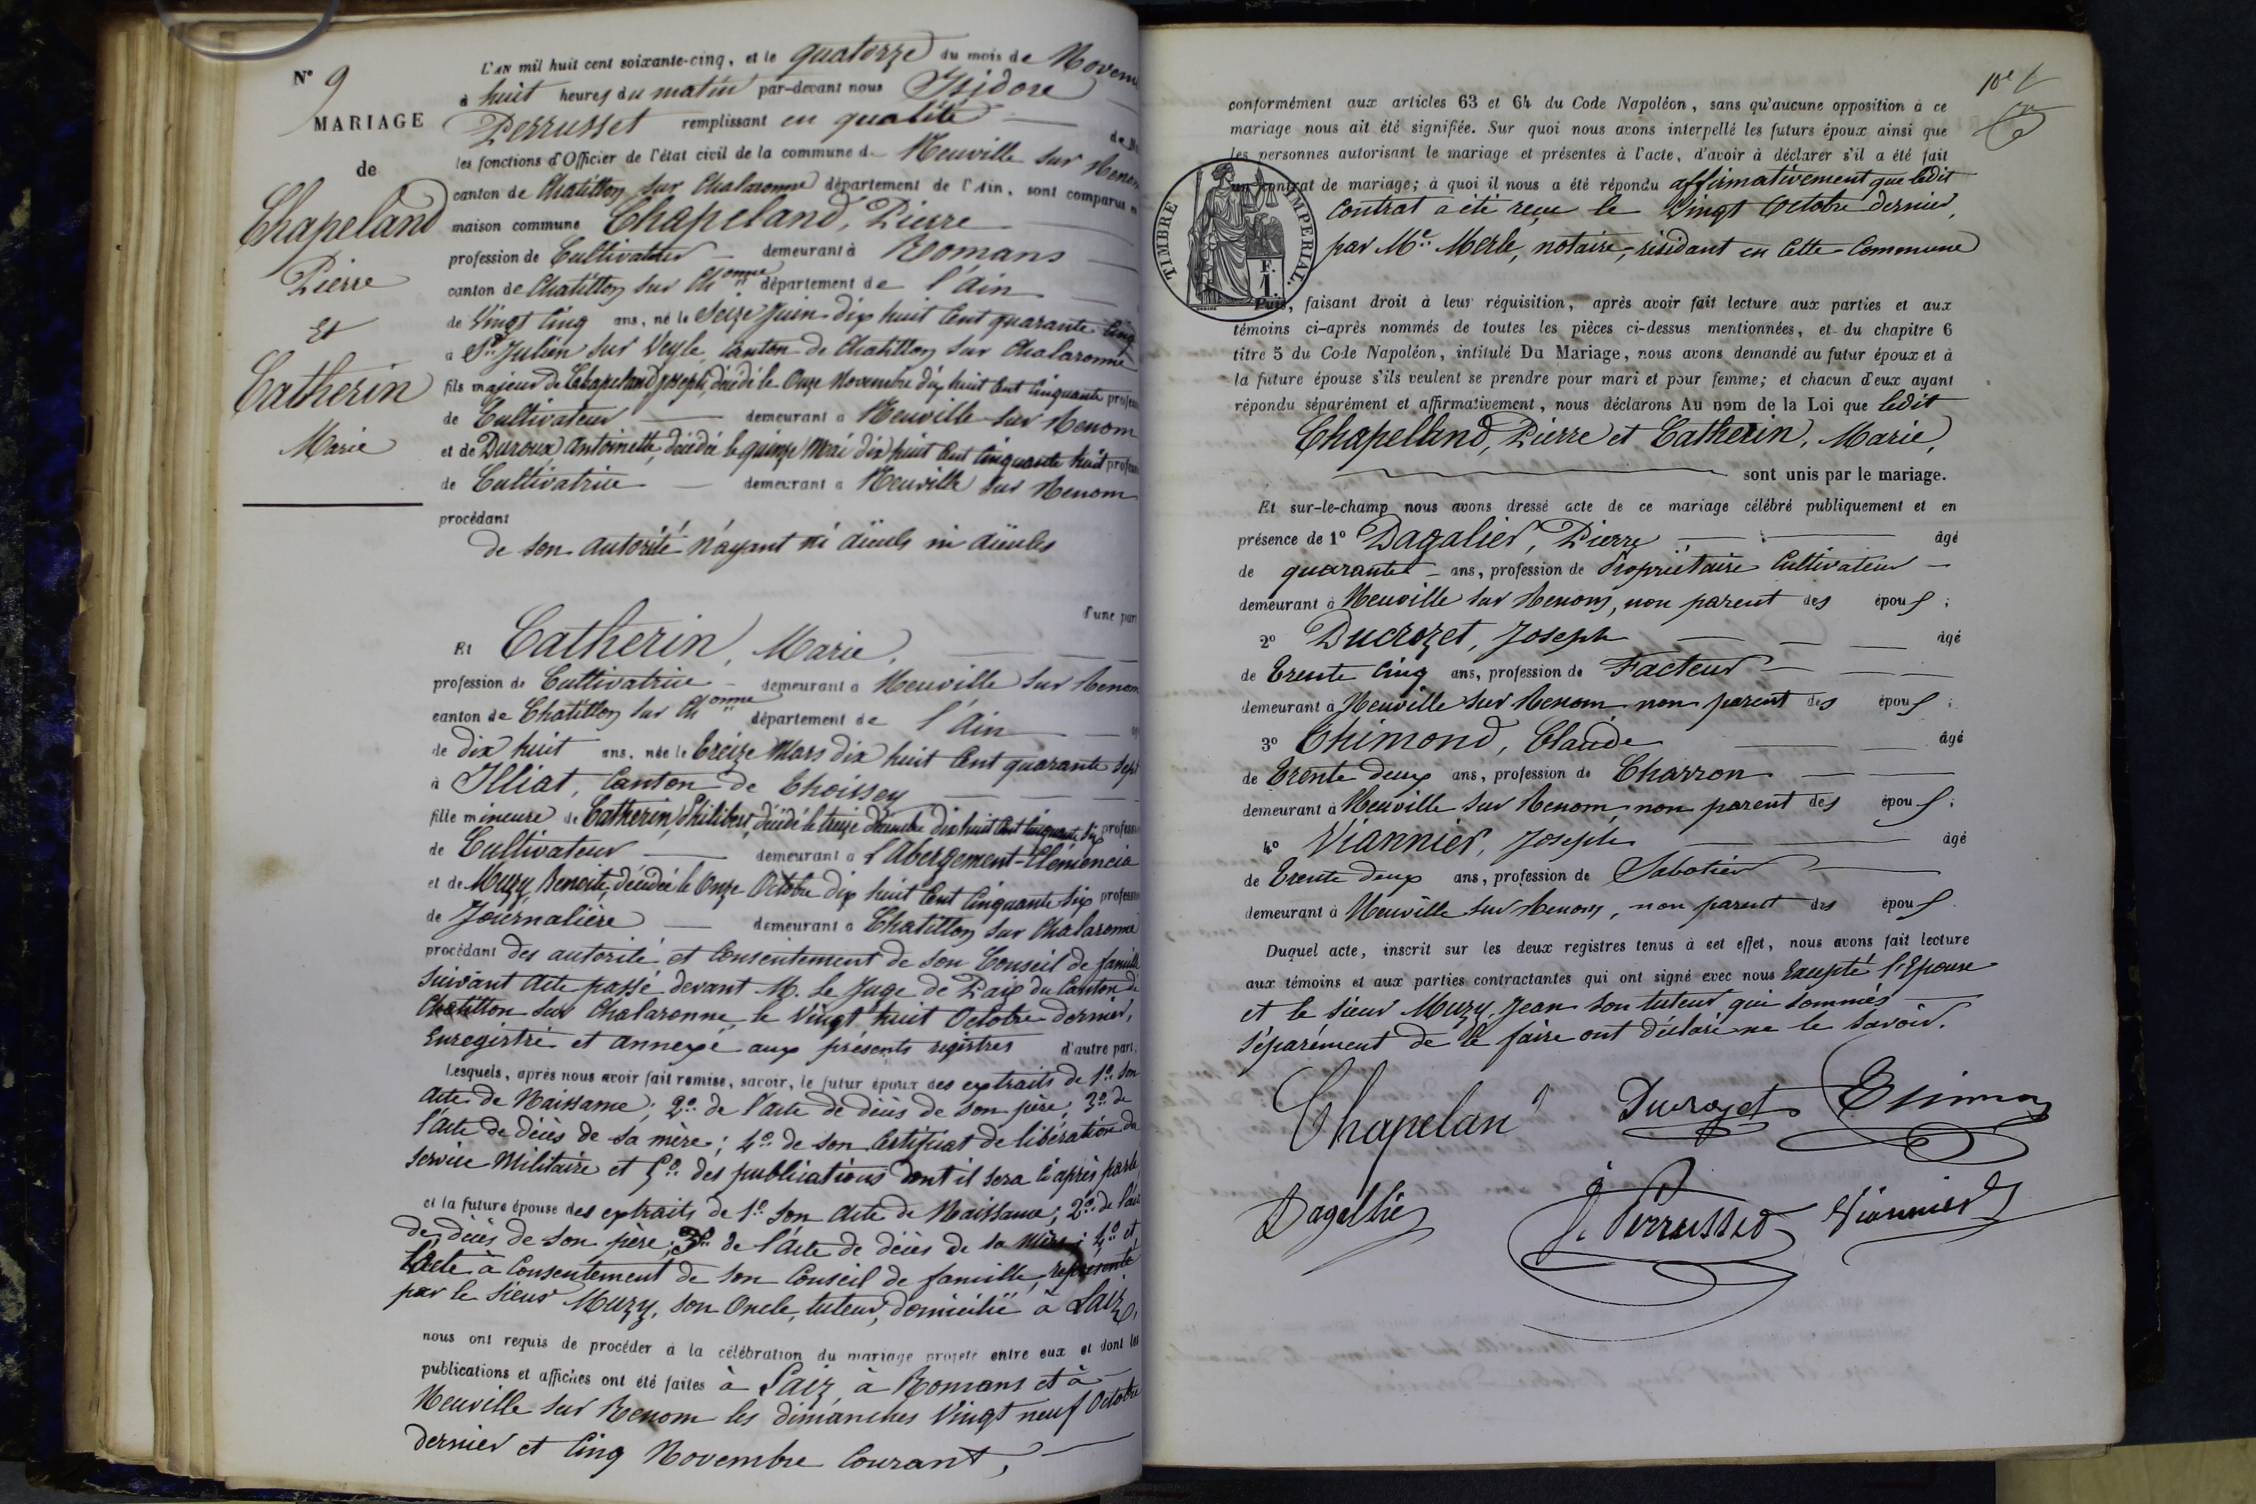 N° 9
MARIAGE
de
Chapeland
Pierre
Et
Catherin
Marie
L'AN mil huit cent soixante-cinq, et le quatorze du mois de Novem
à huit heures du matin par-devant nous Isidore
Perrusset remplissant en qualité de
les fonctions d'Officier de l'état civil de la commune de Neuville sur Renon
canton de Chatillon sur Chalaronne département de l'Ain, sont comparus en
maison commune Chapeland, Pierre
profession de Cultivateur demeurant à Romans
canton de Chatillon sur Chonne département de l'Ain
de Vingt Cinq ans, né le Seize Juin dix huit Cent quarante
à St Julien sur Veyle, canton de Chatillon sur Chalaronne
fils majeur de Chapeland, Joseph, décédé le Onze Novembre dix huit Cent Cinquante profess
de Cultivateur demeurant à Neuville sur Renom
et de Duroux, Antoinette, décédée le quinze Mai dix huit Cent Cinquante huit profess
de Cultivatrice demeurant à Neuville sur Renom
procédant
de son autorité n'ayant ni aïeuls ni aïeules
d'une part
Et Catherin, Marie,
profession de Cultivatrice demeurant à Neuville sur Renom
canton de Chatillon sur Chonne département de l'Ain
de dix huit ans, née le Treize Mars dix huit Cent quarante sept
à Illiat, Canton de Thoissey
fille mineure de Catherin, Philibert, décédé le treize Décembre dix huit Cent Cinquante six profess
de Cultivateur demeurant à l'Abergement-Clémencia
et de Muzy, Benoite, décédée le Onze Octobre dix huit Cent Cinquante six profess
de Journalière demeurant à Chatillon sur Chalaronne
procédant des autorité et Consentement de son Conseil de famille
suivant acte passé devant M. le Juge de Paix du Canton de
Chatillon sur Chalaronne, le Vingt huit Octobre dernier,
Enregistré et annexé aux présents registres d'autre part;
Lesquels, après nous avoir fait remise, savoir, le futur époux des extraits de 1o. son
Acte de Naissance; 2o. de l'acte de décès de son père; 3o. de
l'Acte de décès de sa mère; 4o. de son Certificat de libération du
service Militaire et 5o. des publications dont il sera ci après parlé
et la future épouse des extraits de 1o. son Acte de Naissance; 2o. de l'acte
de décès de son père; 3o. de l'Acte de décès de sa Mère; 4o. et
l'acte à Consentement de son Conseil de famille, représenté
par le sieur Muzy, son Oncle, tuteur, domicilié à Saix,
nous ont requis de procéder à la célébration du mariage projeté entre eux et dont les
publications et affiches ont été faites à Saix, à Romans et à
Neuville sur Renom les dimanches Vingt neuf Octobre
dernier et Cinq Novembre Courant,
10e f
conformément aux articles 63 et 64 du Code Napoléon, sans qu'aucune opposition à ce
mariage nous ait été signifiée. Sur quoi nous avons interpellé les futurs époux ainsi que
les personnes autorisant le mariage et présentes à l'acte, d'avoir à déclarer s'il a été fait
un contrat de mariage; à quoi il nous a été répondu affirmativement que ledit
Contrat a été reçu le Vingt Octobre dernier,
par Me. Merle, notaire, résidant en Cette Commune
TIMBRE IMPERIAL.
F.
1.
Puis, faisant droit à leur réquisition, après avoir fait lecture aux parties et aux
témoins ci-après nommés de toutes les pièces ci-dessus mentionnées, et du chapitre 6
titre 5 du Code Napoléon, intitulé Du Mariage, nous avons demandé au futur époux et à
la future épouse s'ils veulent se prendre pour mari et pour femme; et chacun d'eux ayant
répondu séparément et affirmativement, nous déclarons Au nom de la Loi que ledit
Chapelland, Pierre et Catherin, Marie,
sont unis par le mariage.
Et sur-le-champ nous avons dressé acte de ce mariage célébré publiquement et en
présence de 1° Dagalier, Pierre âgé
de quarante ans, profession de Propriétaire Cultivateur
demeurant à Neuville sur Renom, non parent des époux;
2° Ducrozet, Joseph âgé
de Trente Cinq ans, profession de Facteur
demeurant à Neuville sur Renom, non parent des époux;
3° Thimond, Claude âgé
de Trente deux ans, profession de Charron
demeurant à Neuville sur Renom, non parent des époux;
4° Viannier, Joseph âgé
de Trente deux ans, profession de Sabotier
demeurant à Neuville sur Renom, non parent des époux.
Duquel acte, inscrit sur les deux registres tenus à cet effet, nous avons fait lecture
aux témoins et aux parties contractantes qui ont signé avec nous Excepté l'Epouse
et le sieur Muzy, Jean son tuteur qui sommés
séparément de le faire ont déclaré ne le savoir.
Chapeland Ducrozet Thimon
Dagallier J. Perrusset Viannier